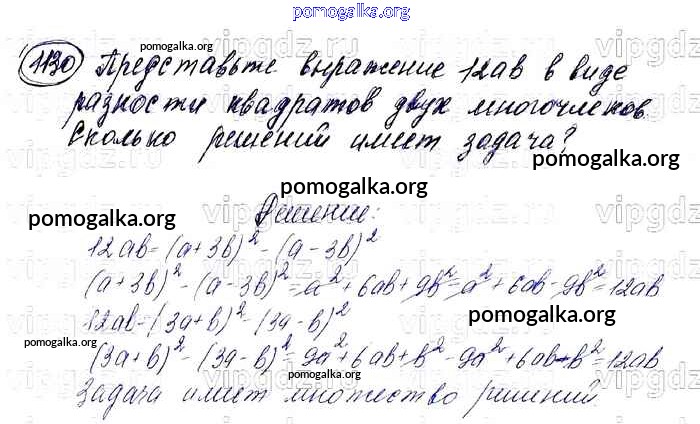 pomogalka.org
pomogalka.org
1130 Представьте выражение 12ab в виде
разности квадратов двух многочленов.
Сколько решений имеет задача?
pomogalka.org
pomogalka.org
pomogalka.org
Решение:
12ab=(a+3b)²-(a-3b)²
(a+3b)²-(a-3b)²=a²+6ab+9b²-a²+6ab-9b²=12ab
pomogalka.org
12ab=(3a+b)²-(3a-b)²
pomogalka.org
(3a+b)²-(3a-b)²=9a²+6ab+b²-9a²+6ab+b²=12ab
pomogalka.org
Задача имеет множество решений
pomogalka.org